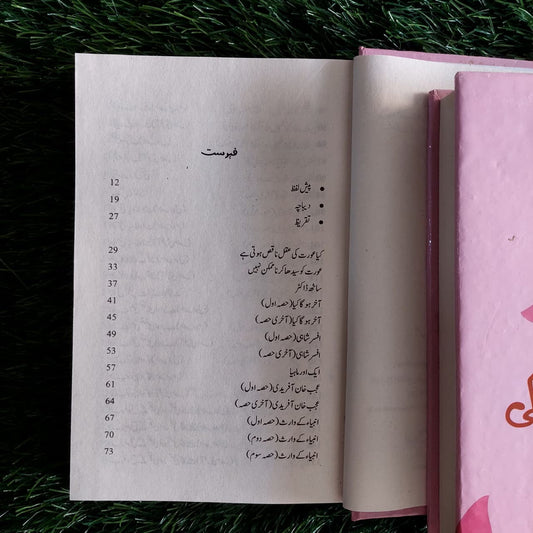 فہرست
• پیش لفظ 12
• دیباچہ 19
• تقریظ 27
کیا عورت کی عقل ناقص ہوتی ہے 29
عورت کو سیدھا کرنا ممکن نہیں 33
ساٹھ ڈاکٹر 37
آخر ہو گا کیا (حصہ اول) 41
آخر ہو گا کیا (آخری حصہ) 45
افسر شاہی (حصہ اول) 49
افسر شاہی (آخری حصہ) 53
ایک اور ماہیا 57
عجب خان آفریدی (حصہ اول) 61
عجب خان آفریدی (آخری حصہ) 64
انبیاء کے وارث (حصہ اول) 67
انبیاء کے وارث (حصہ دوم) 70
انبیاء کے وارث (حصہ سوم) 73